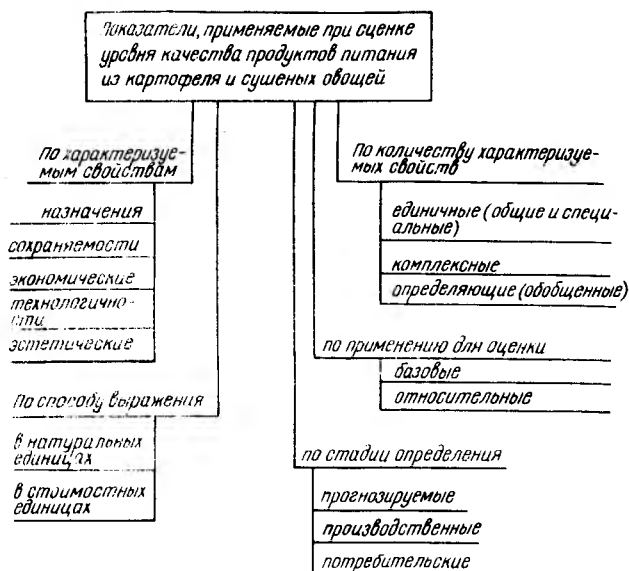 Показатели, применяемые при оценке
уровня качества продуктов питания
из картофеля и сушеных овощей
по характеризуе-
мым свойствам
назначения
сохраняемости
экономические
технологично-
сти
эстетические
По способу выражения
в натуральных
единицах
в стоимостных
единицах
По количеству характеризуе-
мых свойств
единичные (общие и специ-
альные)
комплексные
определяющие (обобщенные)
по применению для оценки
базовые
относительные
по стадии определения
прогнозируемые
производственные
потребительские